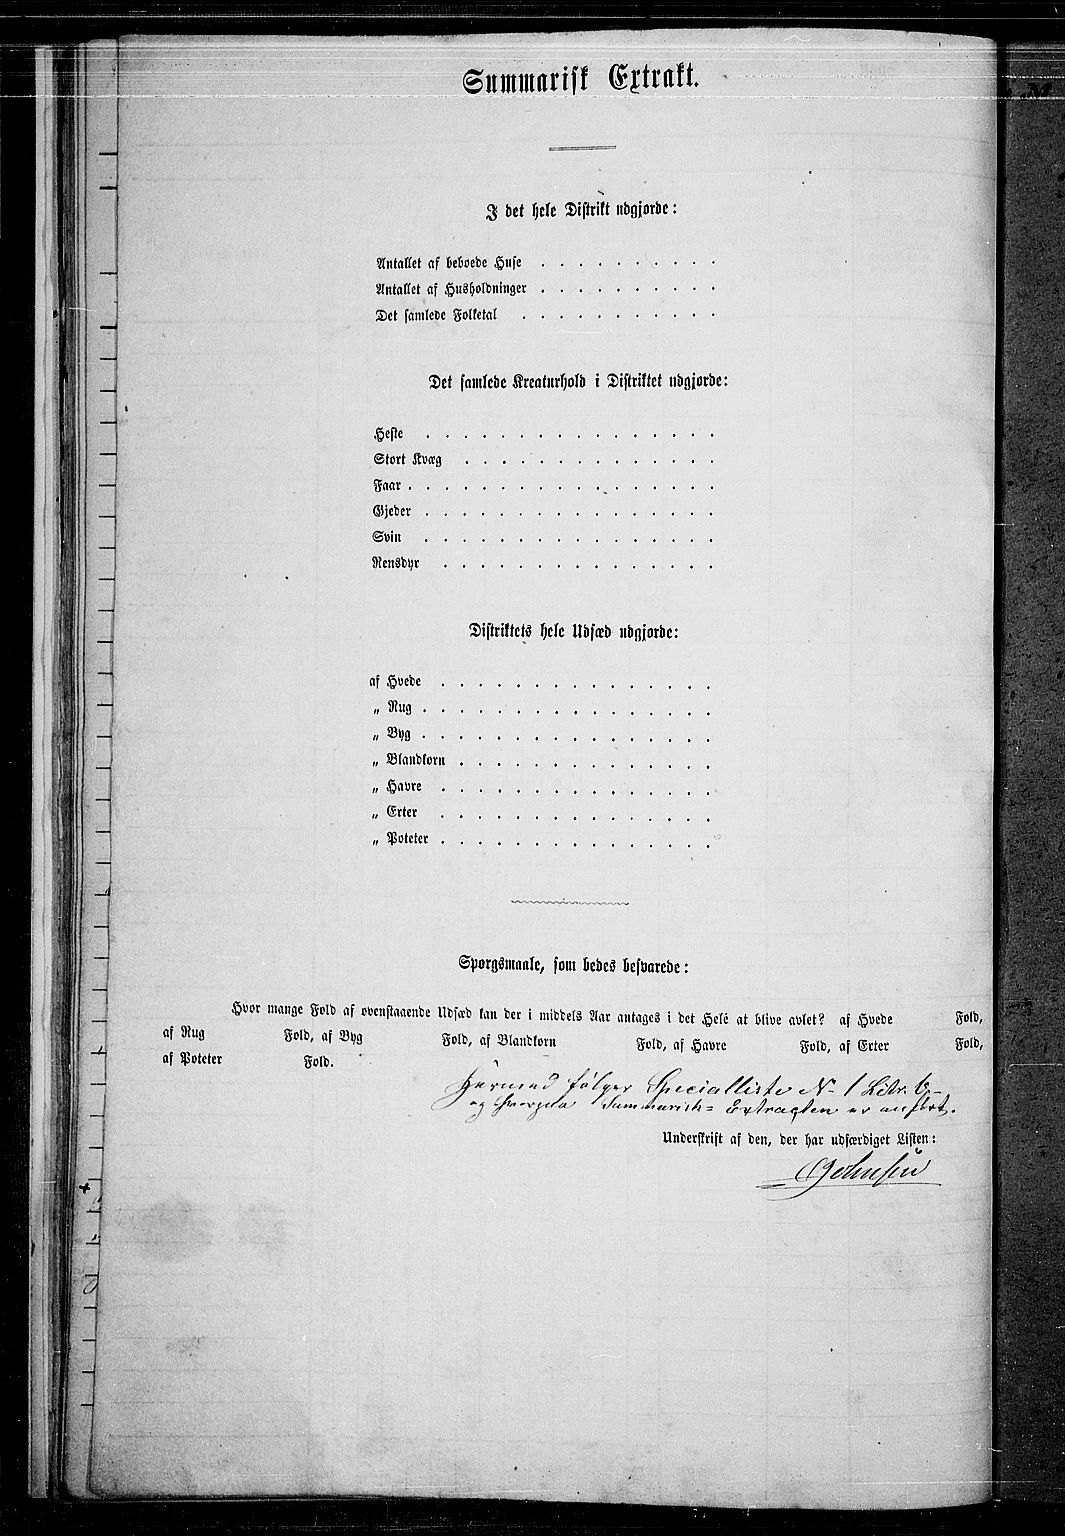 Summarisk Extrakt.
I det hele Distrikt udgjorde:
Antallet af beboede Huse . . . . . . . . . .
Antallet af Husholdninger . . . . . . . . . .
Det samlede Folketal . . . . . . . . . . .
Det samlede Kreaturhold i Distriktet udgjorde:
Heste . . . . . . . . . . . . . . . .
Stort Kvæg . . . . . . . . . . . . . .
Faar . . . . . . . . . . . . . . . . .
Gjeder . . . . . . . . . . . . . . . .
Svin . . . . . . . . . . . . . . . .
Rensdyr . . . . . . . . . . . . . . .
Distriktets hele Udsæd udgjorde:
af Hvede . . . . . . . . . . . . . . .
„ Rug . . . . . . . . . . . . . . . .
„ Byg . . . . . . . . . . . . . . . .
„ Blandkorn . . . . . . . . . . . . . .
„ Havre . . . . . . . . . . . . . . .
„ Erter . . . . . . . . . . . . . . .
„ Poteter . . . . . . . . . . . . . . .
Spørgsmaale, som bedes besvarede:
Hvor mange Fold af ovenstaaende Udsæd kan der i middels Aar antages i det Hele at blive avlet? af Hvede Fold,
af Rug Fold, af Byg Fold, af Blandkorn Fold, af Havre Fold, af Erter Fold,
af Poteter Fold.
Hermed følger Specialliste N- 1 Litr.
og hvorpaa Summarisk= Extracten er anført.
Underskrift af den, der har udfærdiget Listen: